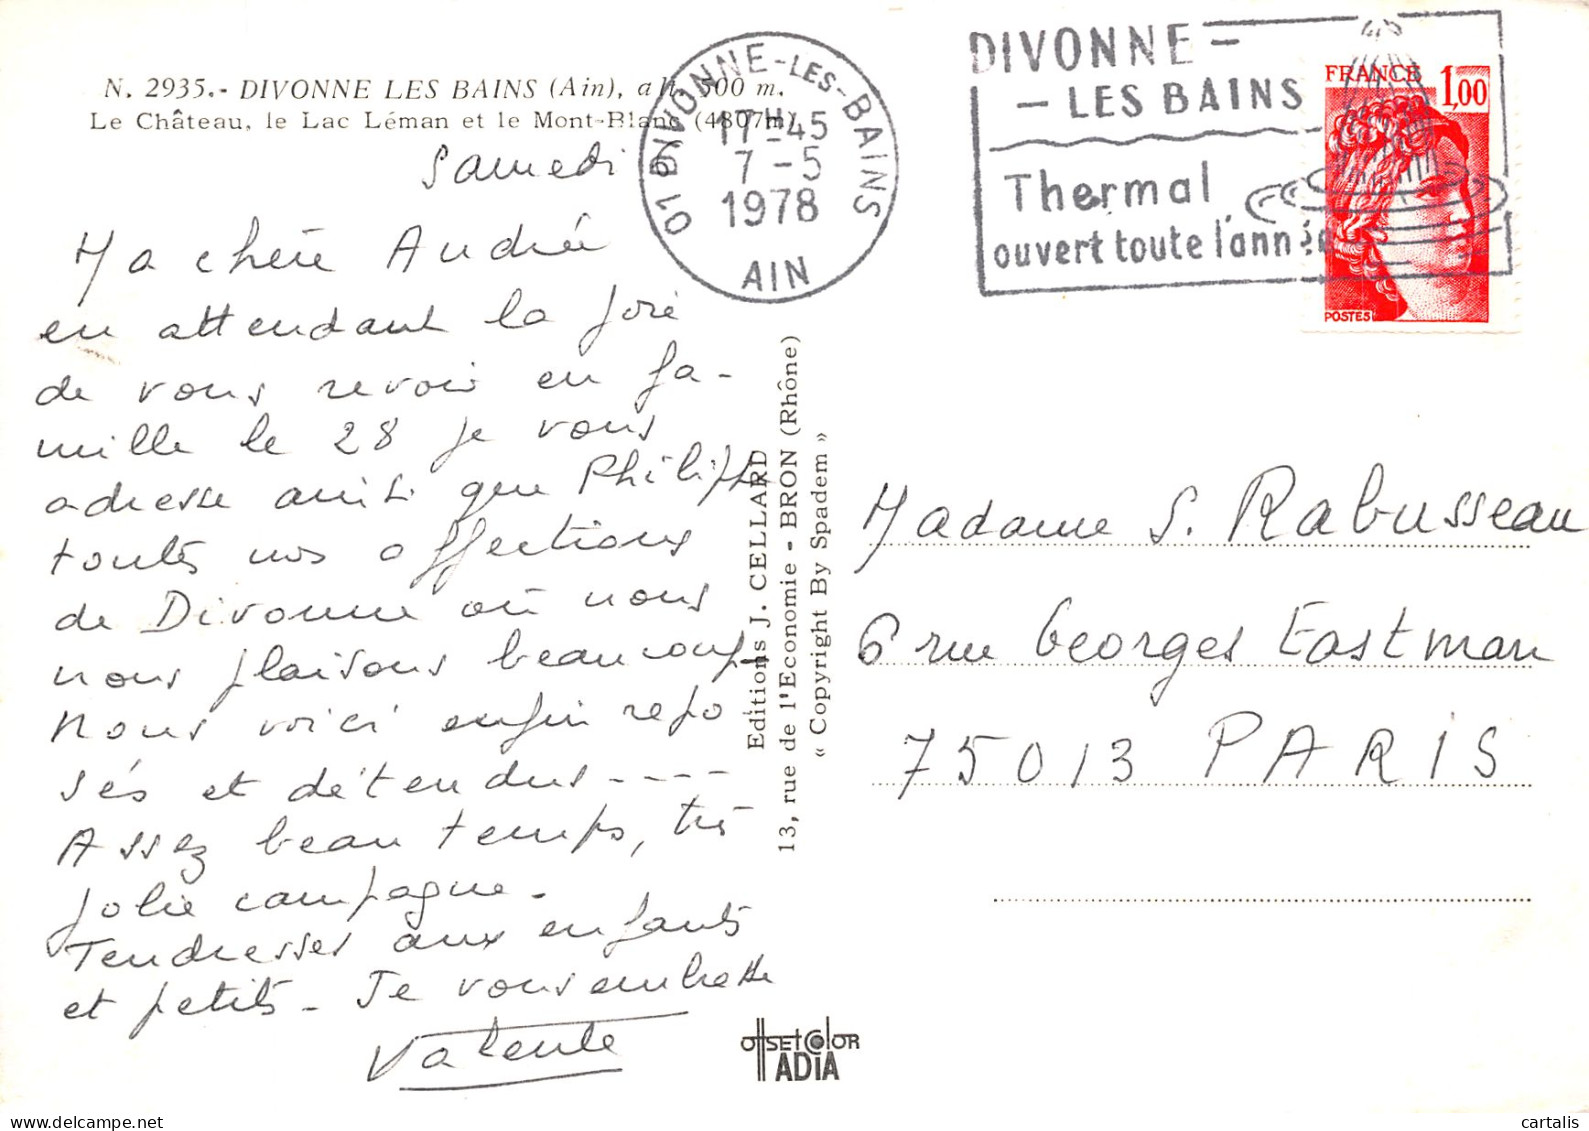 N. 2935.- DIVONNE LES BAINS (Ain), alt. 500 m.
Le Château, le Lac Léman et le Mont-Blanc (4807m)
Samedi 6
Ma chère Andrée
en attendant la joie
de vous revoir en fa-
mille le 28 je vous
adresse ainsi que Philippe
toutes nos affections
de Divonne où nous
nous plaisons beaucoup
Nous voici enfin repo
sés et détendus ----
Assez beau temps, très
jolie campagne.
Tendresses aux enfants
et petits - Je vous embrasse
01 DIVONNE-LES-BAINS
17H-45
7-5
1978
AIN
DIVONNE-
-LES BAINS
Thermal
ouvert toute l'année
FRANCE 1,00
POSTES
Editions J. CELLARD
13, rue de l'Economie - BRON (Rhône)
« Copyright By Spadem »
Madame S. Rabusseau
6 rue Georges Eastman
75013 PARIS
offset color
ADIA
cartalis